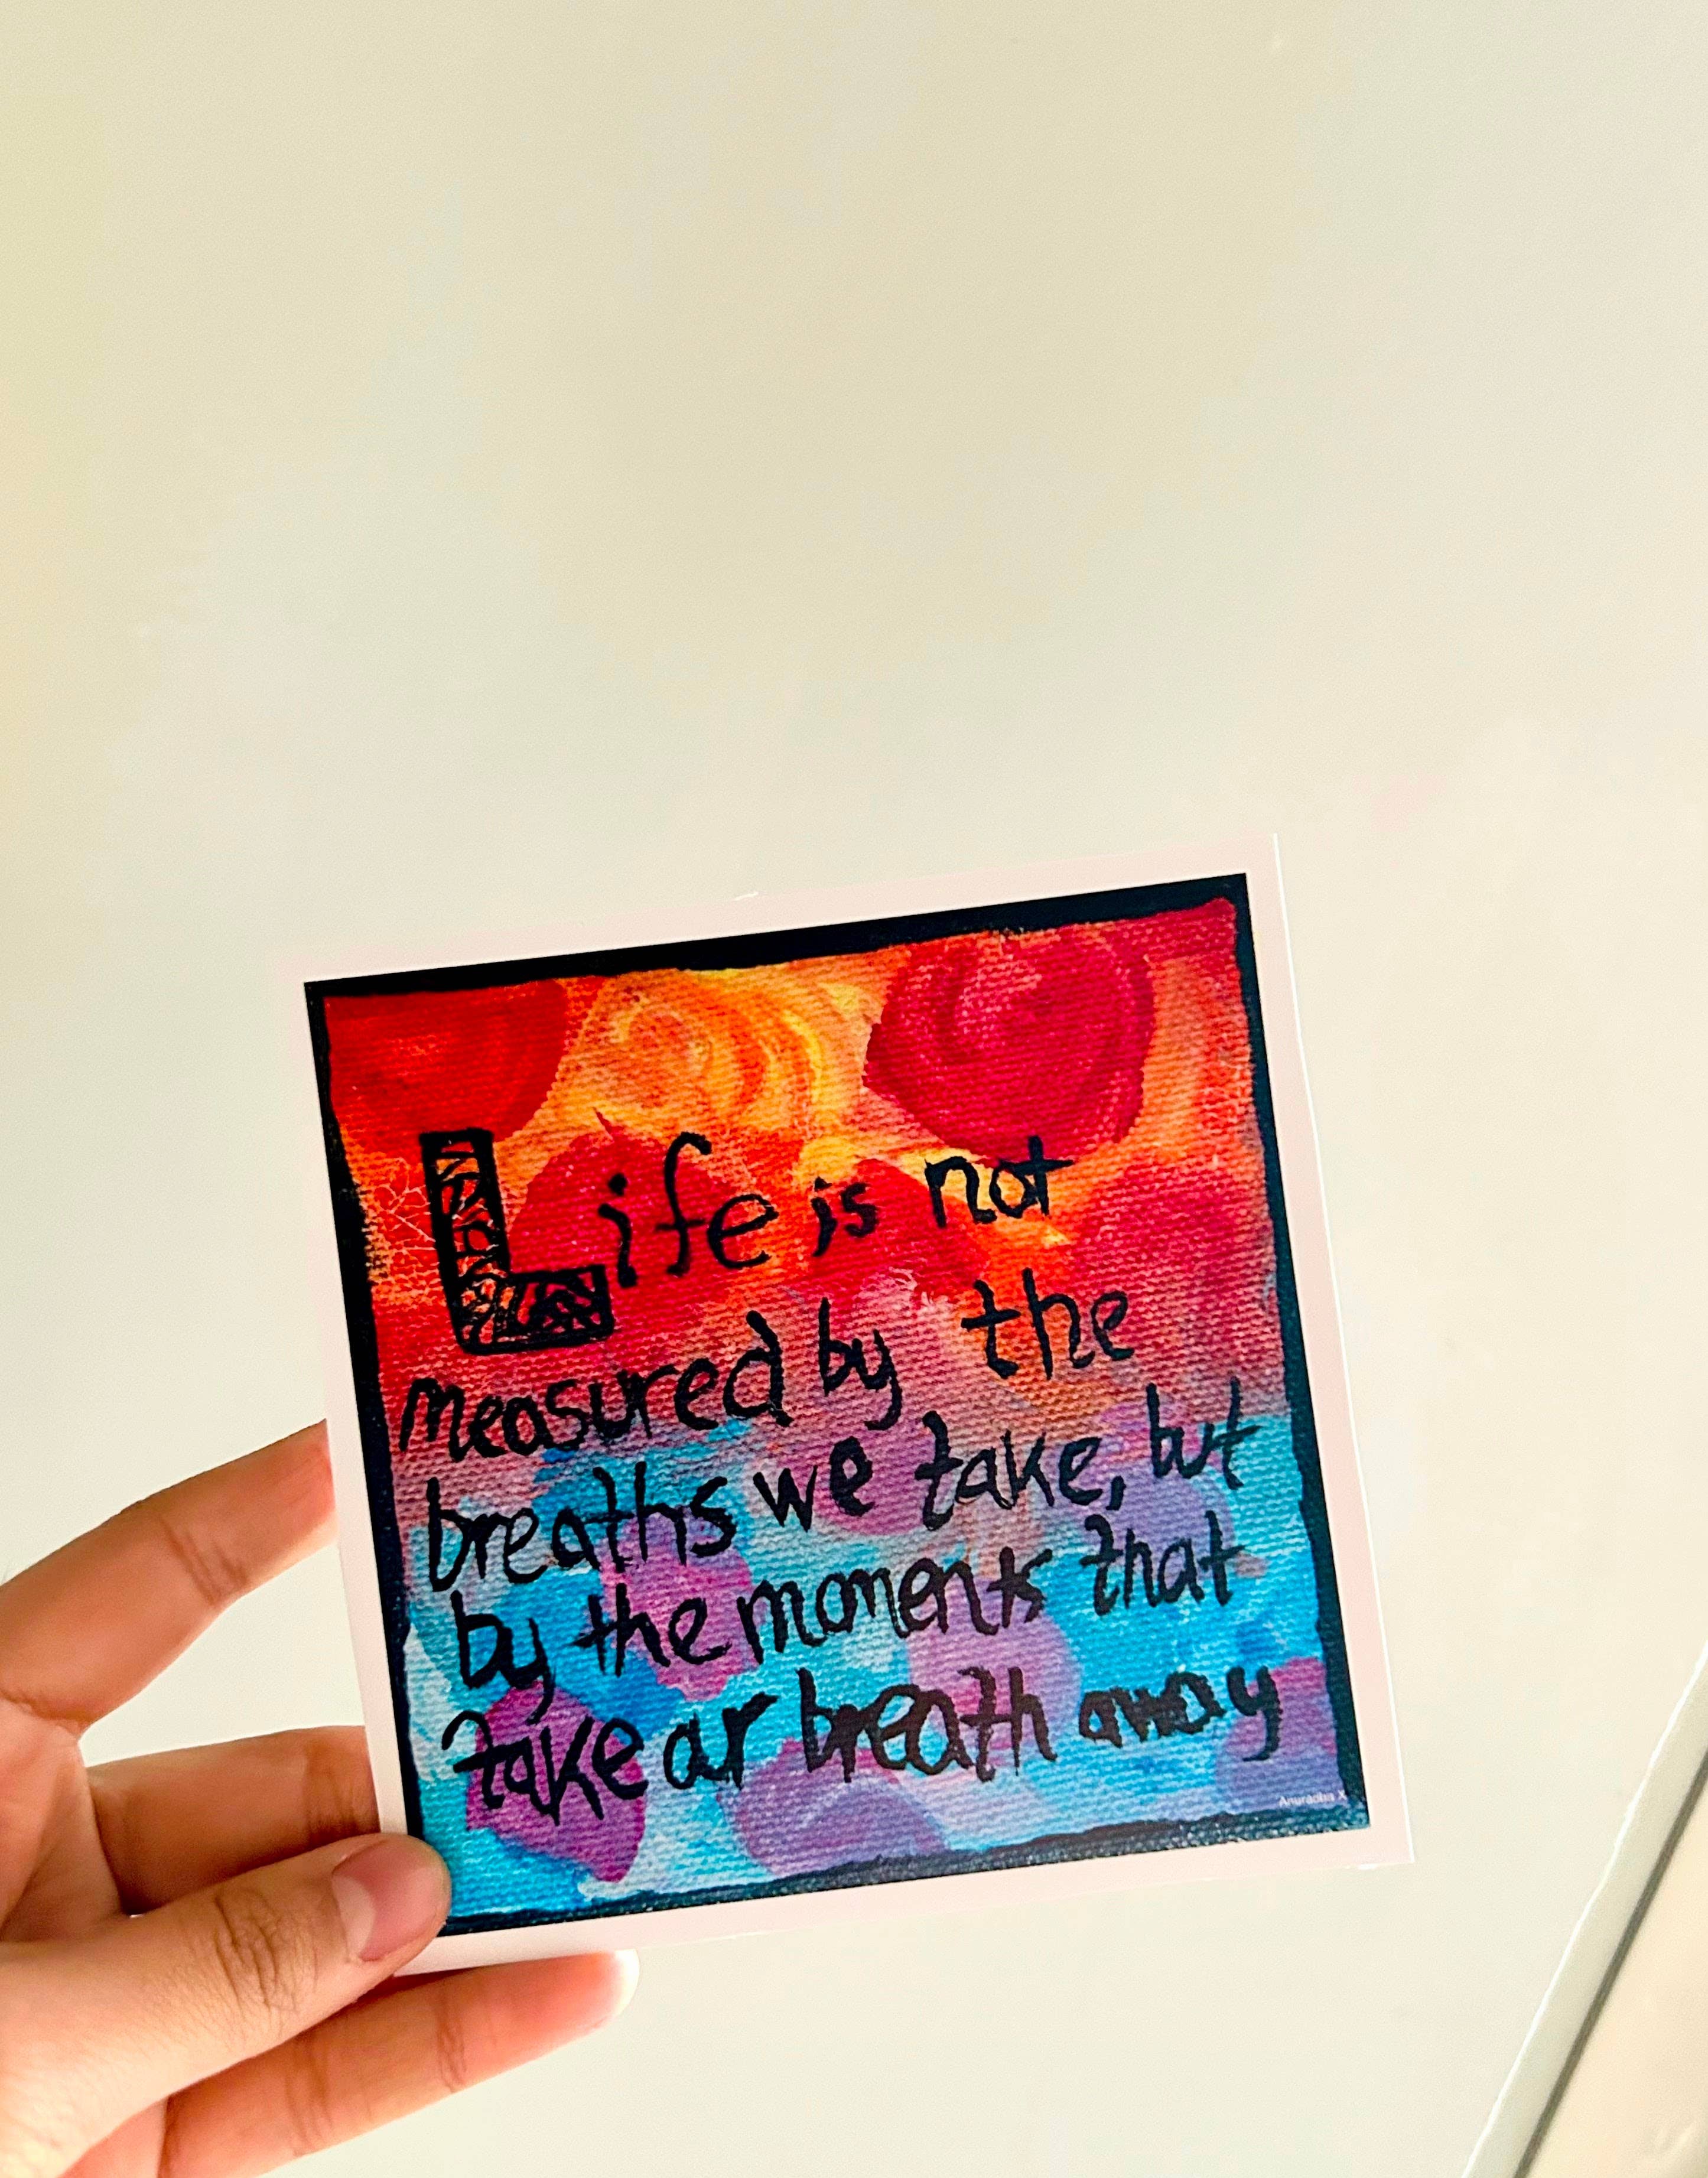 Life is not
measured by the
breaths we take, but
by the moments that
take ar breath away